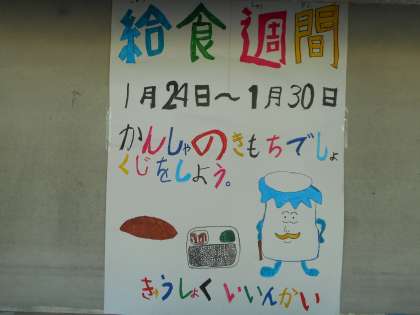 給食週間
1月24日〜1月30日
かんしゃのきもちでしょ
くじをしよう。
きゅうしょくいいんかい